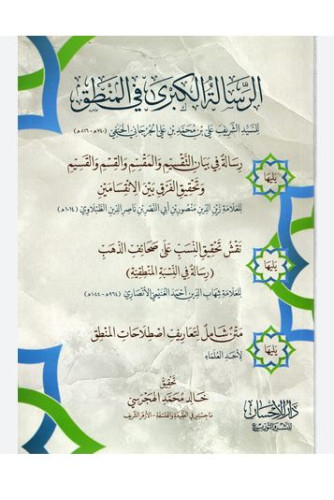 الرسالة الكبرى في المنطق
للسيد الشريف علي بن محمد بن علي الجرجاني الحنفي (٧٤٠-٨١٦هـ)
يليها
رسالة في بيان التقسيم والمقسم والقسم والقسيم
وتحقيق الفرق بين الانقسامين
للعلامة زين الدين منصور بن أبي النصر بن ناصر الدين الطبلاوي (١٠١٤هـ)
يليها
نقش تحقيق النسب على صحائف الذهب
(رسالة في النسبة المنطقية)
للعلامة شهاب الدين أحمد الغنيمي الأنصاري (٩٦٤-١٠٤٤هـ)
يليها
متن شامل لتعاريف اصطلاحات المنطق
لأحد العلماء
تحقيق
خالد محمد الهجرسي
ماجستير في العقيدة والفلسفة - الأزهر الشريف
دار الإحسان
للنشر والتوزيع